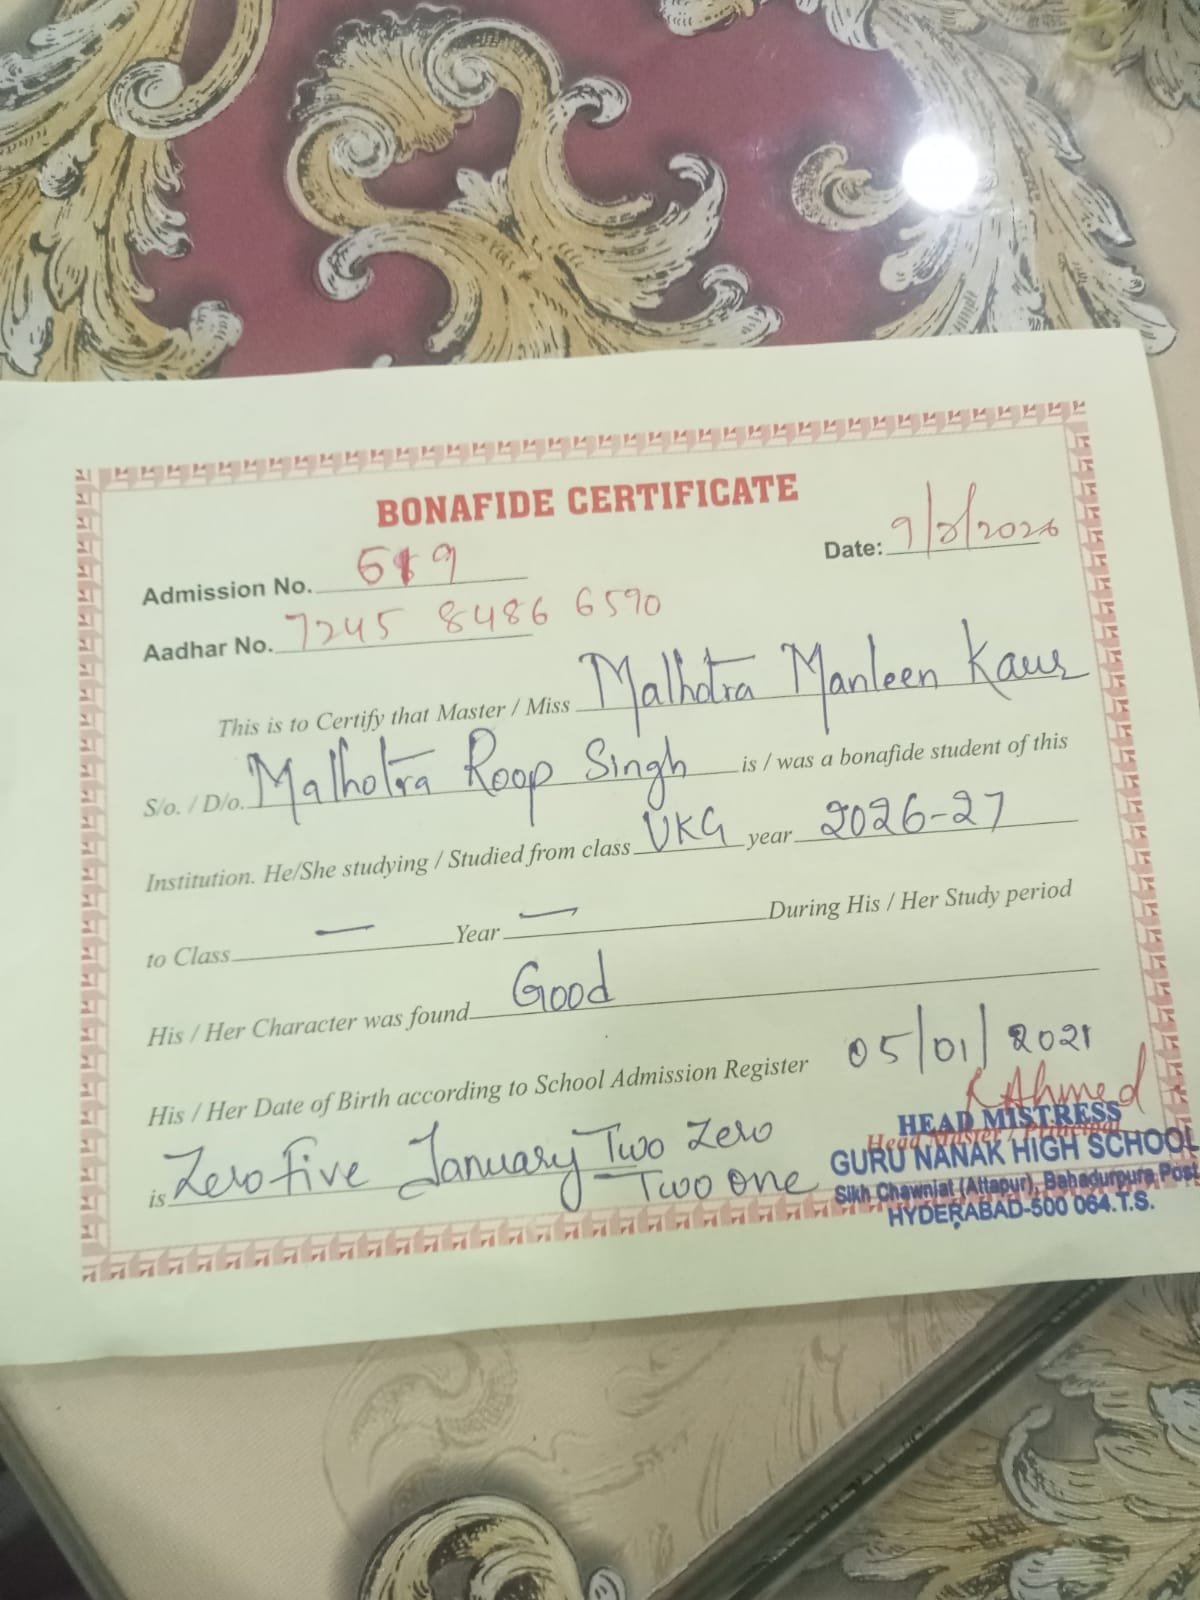 BONAFIDE CERTIFICATE
Admission No. 619
Date: 9/2/2026
Aadhar No. 7245 8486 6590
This is to Certify that Master / Miss Malhotra Manleen Kaur
S/o. / D/o. Malhotra Roop Singh is / was a bonafide student of this
Institution. He/She studying / Studied from class UKG year 2026-27
to Class — Year — During His / Her Study period
His / Her Character was found Good
His / Her Date of Birth according to School Admission Register 05/01/2021
is Zero five January Two Zero
Two one
R Ahmed
HEAD MISTRESS
Head Master / Principal
GURU NANAK HIGH SCHOOL
Sikh Chawniat (Attapur), Bahadurpura Post
HYDERABAD-500 064.T.S.